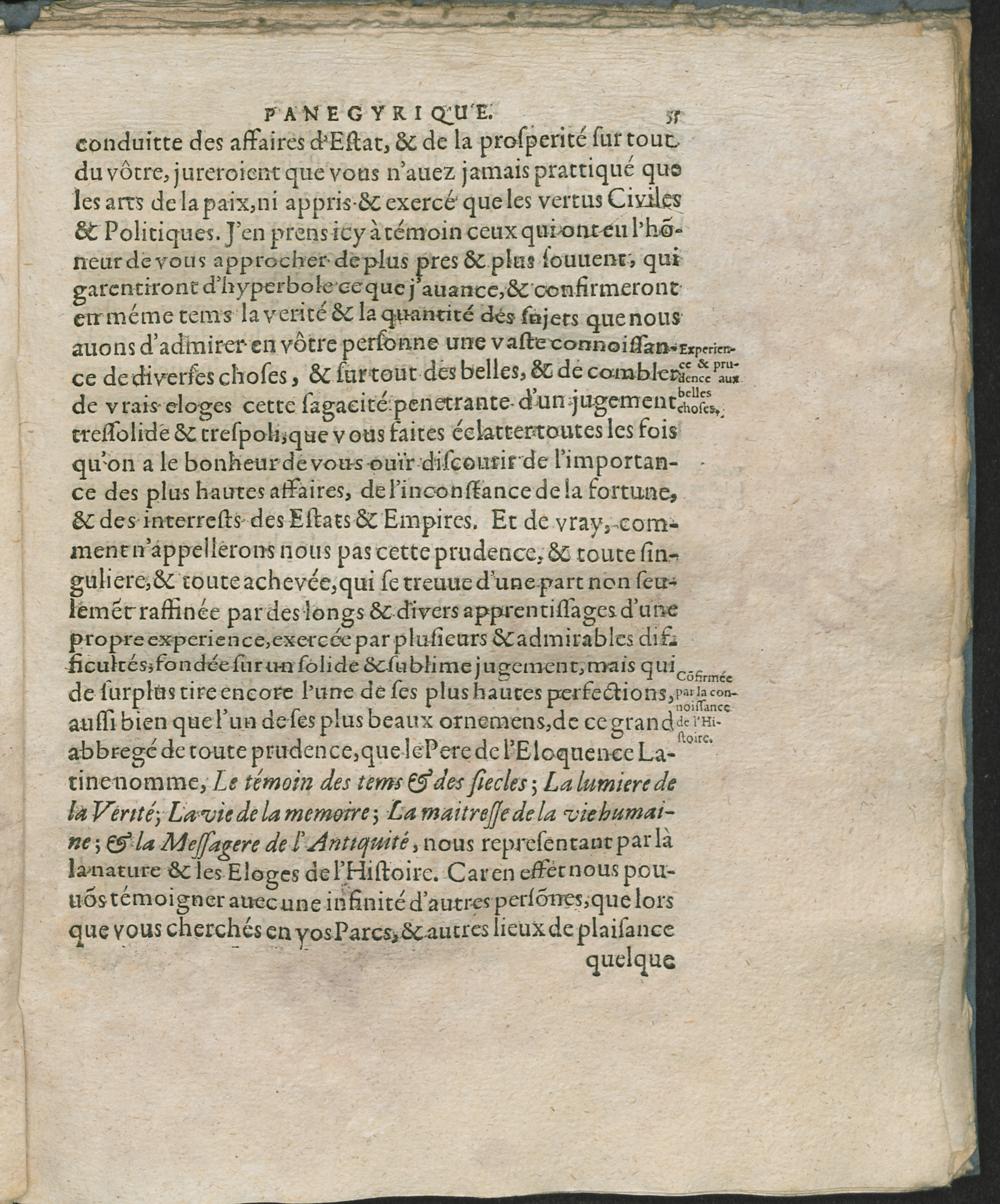 PANEGYRIQUE. 55
conduitte des affaires d'Eſtat, & de la proſperité ſur tout
du vôtre, jureroient que vous n'auez jamais prattiqué que
les arts de la paix, ni appris & exercé que les vertus Civiles
& Politiques. J'en prens icy à témoin ceux qui ont eu l'hõ-
neur de vous approcher de plus pres & plus ſouuent, qui
garentiront d'hyperbole ce que j'auance, & confirmeront
en méme tems la verité & la quantité des ſujets que nous
auons d'admirer en vôtre perſonne une vaſte connoiſſan-
ce de diverſes choſes, & ſur tout des belles, & de combler
de vrais eloges cette ſagacité penetrante d'un jugement
treſſolide & treſpoli, que vous faites éclatter toutes les fois
qu'on a le bonheur de vous ouïr diſcourir de l'importan-
ce des plus hautes affaires, de l'inconſtance de la fortune,
& des interreſts des Eſtats & Empires. Et de vray, com-
ment n'appellerons nous pas cette prudence, & toute ſin-
guliere, & toute achevée, qui ſe treuue d'une part non ſeu-
lemẽt raffinée par des longs & divers apprentiſſages d'une
propre experience, exercée par pluſieurs & admirables dif-
ficultés, fondée ſur un ſolide & ſublime jugement, mais qui
de ſurplus tire encore l'une de ſes plus hautes perfections,
auſſi bien que l'un de ſes plus beaux ornemens, de ce grand
abbregé de toute prudence, que le Pere de l'Eloquence La-
tine nomme, Le témoin des tems & des ſiecles; La lumiere de
la Vérité; La vie de la memoire; La maitreſſe de la vie humai-
ne; & la Meſſagere de l'Antiquité, nous repreſentant par là
la nature & les Eloges de l'Hiſtoire. Car en effèt nous pou-
uõs témoigner auec une infinité d'autres perſõnes, que lors
que vous cherchés en vos Parcs, & autres lieux de plaiſance
quelque
Experien-
ce & pru-
dence aux
belles
choſes.
Cõfirmée
par la con-
noiſſance
de l'Hi-
ſtoire.